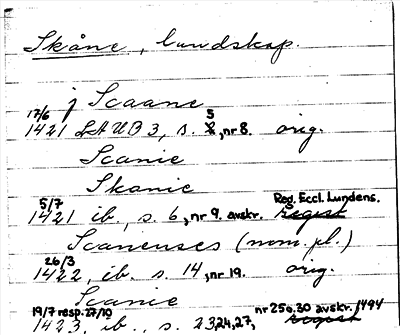 Skåne, landskap.
j Scaane
17/6 1421 LAUB 3, s. 5, nr 8. orig.
Scanie
Skanie
5/7 1421 ib., s. 6, nr 9. avskr. Reg. Eccl. Lundens.
Scanenses (nom. pl.)
26/3 1422, ib. s. 14, nr 19. orig.
Scanie
19/7 resp. 27/10 1423, ib., s. 23, 24, 27, nr 25 o. 30 avskr. 1494